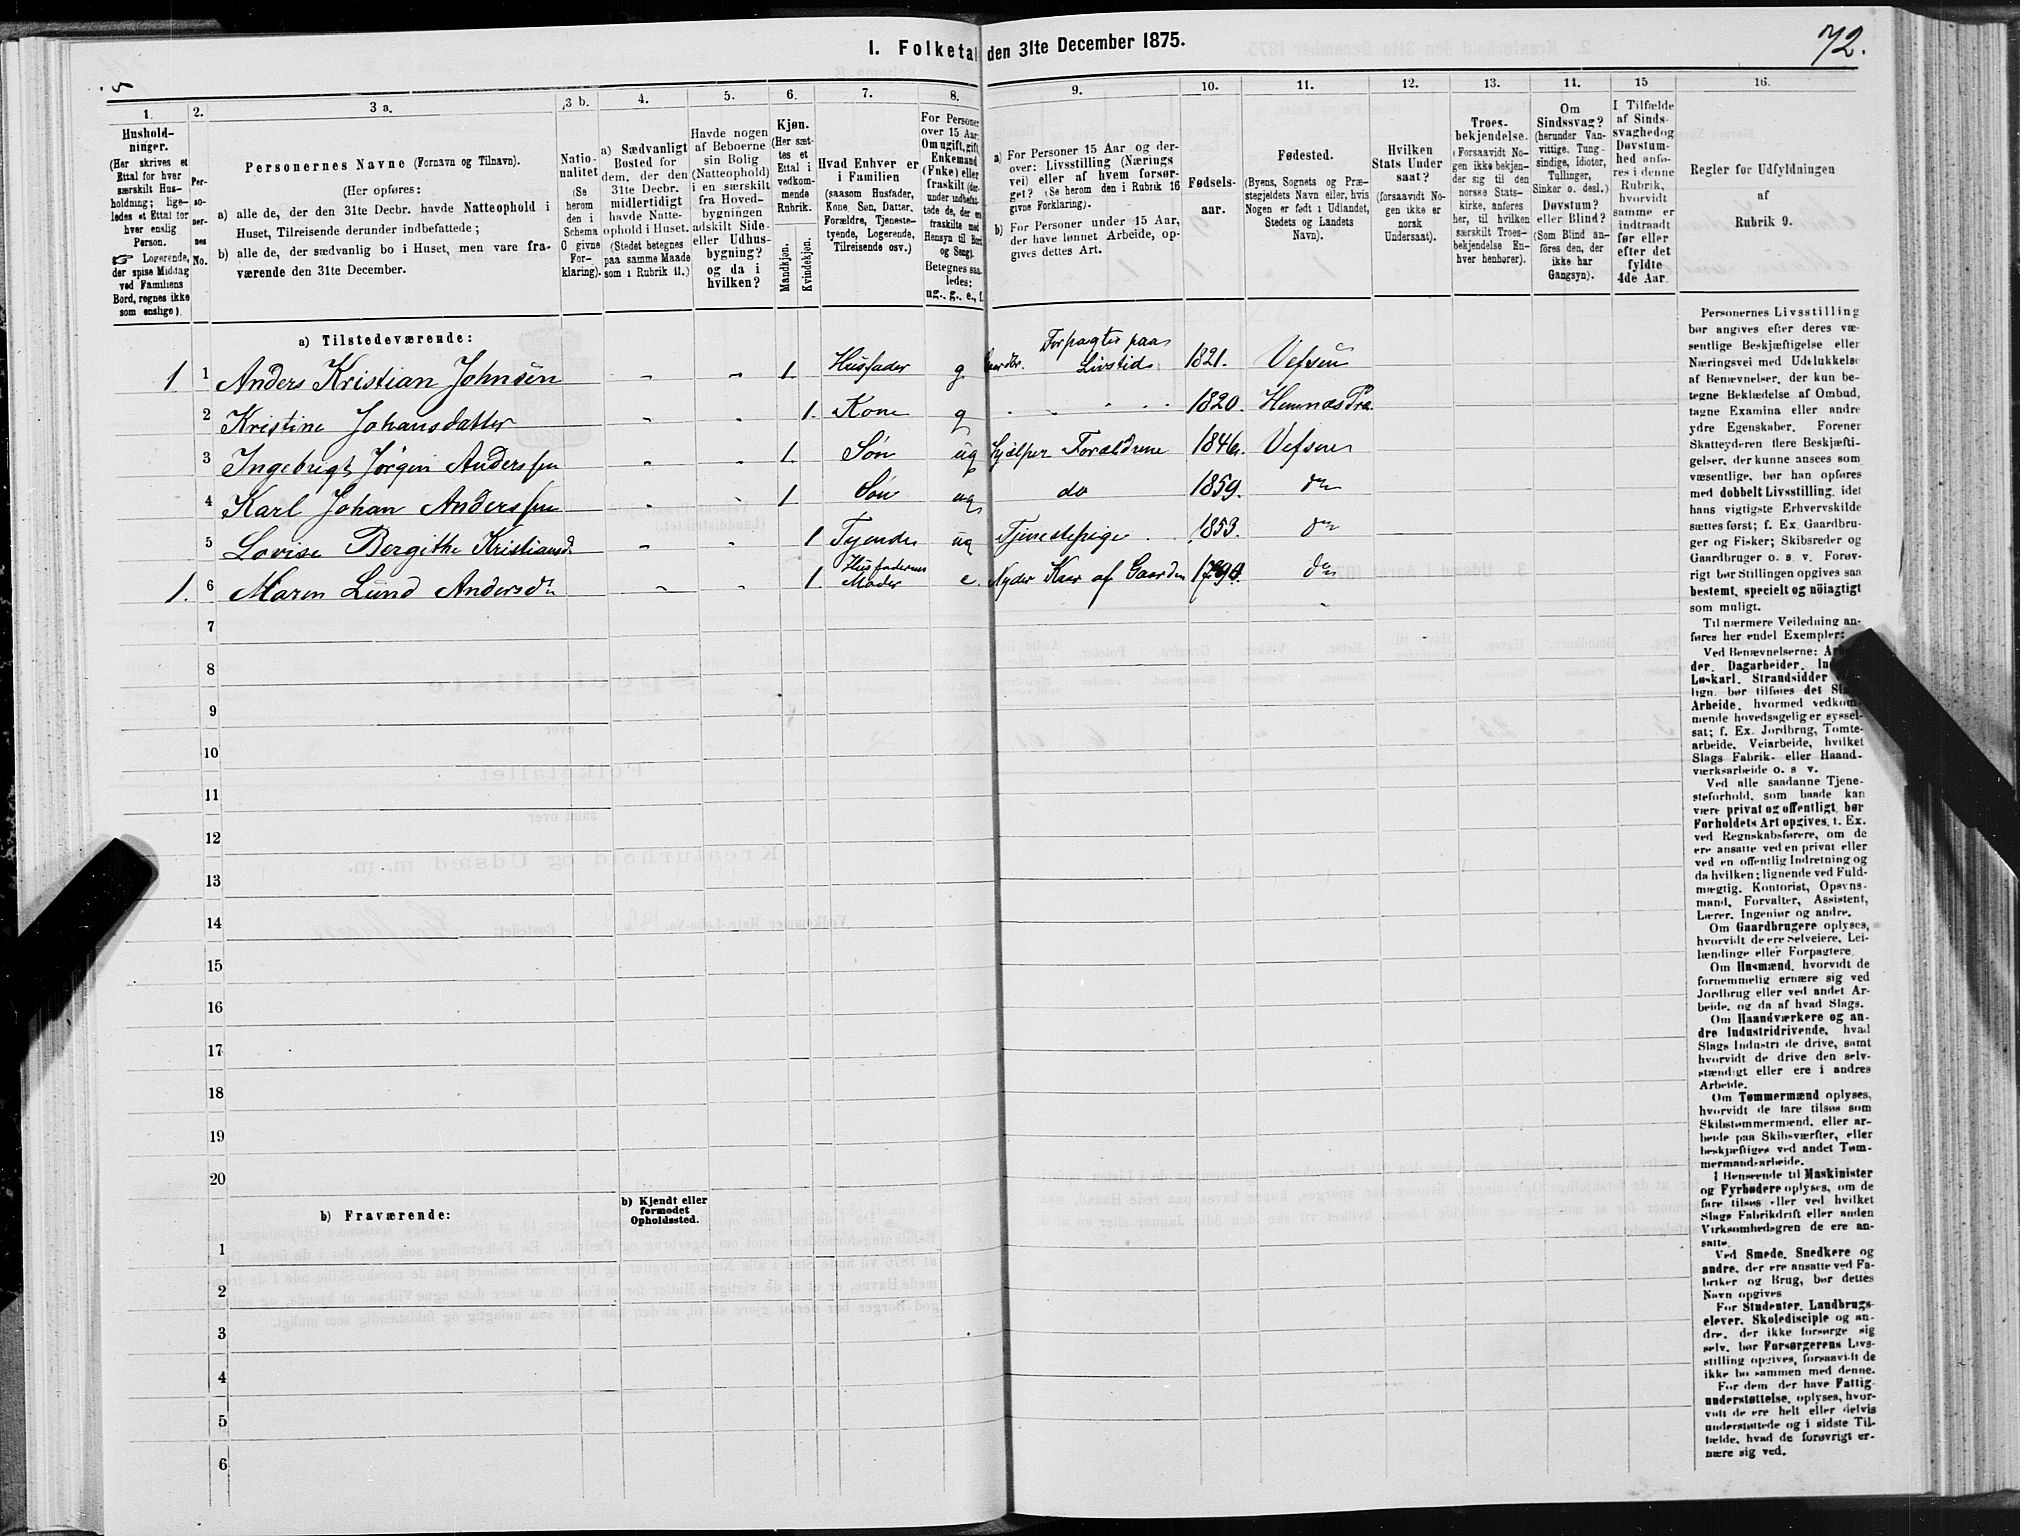 I. Folketal den 31te December 1875.
72.
5
1.
Hushold-
ninger.
(Her skrives et
Ettal for hver
særskilt Hus-
holdning; lige-
ledes et Ettal for
hver enslig
Person.
☞ Logerende,
der spise Middag
ved Familiens
Bord, regnes ikke
som enslige).
2.
Per-
so-
ner-
nes
No.
3 a.
Personernes Navne (Fornavn og Tilnavn).
(Her opføres:
a) alle de, der den 31te Decbr. havde Natteophold i
Huset, Tilreisende derunder indbefattede;
b) alle de, der sædvanlig bo i Huset, men vare fra-
værende den 31te December.
3 b.
Natio-
nalitet
(Se
herom
den i
Schema
C givne
For-
klaring).
4.
a) Sædvanligt
Bosted for
dem, der den
31te Decbr.
midlertidigt
havde Natte-
ophold i Huset.
(Stedet betegnes
paa samme Maade
som i Rubrik 11.)
5.
Havde nogen
af Beboerne
sin Bolig
(Natteophold)
i en særskilt
fra Hoved-
bygningen
adskilt Side-
eller Udhus-
bygning?
og da i
hvilken?
6.
Kjøn.
(Her sæt-
tes et
Ettal i
vedkom-
mende
Rubrik.
Mandkjøn.
Kvindekjøn.
7.
Hvad Enhver er
i Familien
(saasom Husfader,
Kone, Søn, Datter,
Forældre, Tjeneste-
tyende, Logerende,
Tilreisende osv.)
8.
For Personer
over 15 Aar:
Om ugift, gift,
Enkemand
(Enke) eller
fraskilt (der-
under indbefat-
tede de, der ere
fraskilte med
Hensyn til Bord
og Seng).
Betegnes saa-
ledes:
ug., g., e., f.
9.
a) For Personer 15 Aar og der-
over: Livsstilling (Nærings
vei) eller af hvem forsør-
get? (Se herom den i Rubrik 16
givne Forklaring).
b) For Personer under 15 Aar,
der have lønnet Arbeide, op-
gives dettes Art.
10.
Fødsels-
aar.
11.
Fødested.
(Byens, Sognets og Præ-
stegjeldets Navn eller, hvis
Nogen er født i Udlandet,
Stedets og Landets
Navn).
12.
Hvilken
Stats Under
saat?
(forsaavidt No-
gen ikke er
norsk
Undersaat).
13.
Troes-
bekjendelse.
(Forsaavidt No-
gen ikke bekjen-
der sig til den
norske Stats-
kirke, anføres
her, til hvilken
særskilt Troes-
bekjendelse En-
hver henhører).
14.
Om
Sindssvag?
(herunder Van-
vittige, Tung-
sindige, Idioter,
Tullinger,
Sinker o. desl.)
Døvstum?
eller Blind?
(Som Blind an-
føres den, der
ikke har
Gangsyn).
15
I Tilfælde
af Sinds-
svaghed og
Døvstum-
hed anfø-
res i denne
Rubrik,
hvorvidt
samme er
indtraadt
før eller
efter det
fyldte
4de Aar.
16.
Regler for Udfyldningen
af
Rubrik 9.
a) Tilstedeværende:
1 1 Anders Kristian Johnsen - - 1. Husfader g Gaardbr. Forpagter paa Livstid 1821. Vefsen
2 Kristine Johansdatter - - 1. Kone g 1820. Hemnæs Pr.
3 Ingebrigt Jørgen Anderssen - - 1. Søn ug hjælper Forældrene 1846. Vefsen
4 Karl Johan Anderssen - - 1 Søn ug do 1859. do
5 Lovise Bergithe Kristiansd. - - 1 Tyende ug Tjenestepige 1853. do
1. 6 Maren Lund Andersdn - - 1 Husfaderens Moder e. Nyder Kaar af Gaarden 1790. do
7
8
9
10
11
12
13
14
15
16
17
18
19
20
b) Fraværende:
b) Kjendt eller
formodet
Opholdssted.
1
2
3
4
5
6
Personernes Livsstilling
bør angives efter deres væ-
sentlige Beskjæftigelse eller
Næringsvei med Udelukkelse
af Benævnelser, der kun be-
tegne Beklædelse af Ombud,
tagne Examina eller andre
ydre Egenskaber. Forener
Skatteyderen flere Beskjæfti-
gelser, der kunne ansees som
væsentlige, bør han opføres
med dobbelt Livsstilling, idet
hans vigtigste Erhvervskilde
sættes først; f. Ex. Gaardbru-
ger og Fisker; Skibsreder og
Gaardbruger o. s. v. Forøv-
rigt bør Stillingen opgives saa
bestemt, specielt og nøiagtigt
som muligt.
Til nærmere Veiledning an-
føres her endel Exempler:
Ved Benævnelserne:
der, Dagarbeider,
Løskarl, Strandsidder
lign. bør tilføies det
Arbeide, hvormed vedkom-
mende hovedsagelig er syssel-
sat; f. Ex. Jordbrug, Tomte-
arbeide, Veiarbeide, hvilket
Slags Fabrik- eller Haand-
værksarbeide o. s v.
Ved alle saadanne Tjene-
steforhold, som baade kan
være privat og offentligt, bør
Forholdets Art opgives, t. Ex.
ved Regnskabsførere, om de
ere ansatte ved en privat eller
ved en offentlig Indretning og
da hvilken; lignende ved Fuld-
mægtig, Kontorist, Opsyns-
mand, Forvalter, Assistent,
Lærer, Ingeniør og andre.
Om Gaardbrugere oplyses,
hvorvidt de ere Selveiere, Lei-
lændinge eller Forpagtere.
Om Husmænd, hvorvidt de
fornemmelig ernære sig ved
Jordbrug eller ved andet Ar-
beide, og da af hvad Slags.
Om Haandværkere og an-
dre Industridrivende, hvad
Slags Industri de drive, samt
hvorvidt de drive den selv-
stændigt eller ere i andres
Arbeide.
Om Tømmermænd oplyses,
hvorvidt de fare tilsøs som
Skibstømmermænd, eller ar-
beide paa Skibsværfter, eller
beskjæftiges ved andet Tøm-
mermandsarbeide.
I Henseende til Maskinister
og Fyrbødere oplyses, om de
fare tilsøs eller ved hvilket
Slags Fabrikdrift eller anden
Virksomhedsgren de ere an-
satte.
Ved Smede, Snedkere og
andre, der ere ansatte ved Fa-
briker og Brug, bør dettes
Navn opgives
For Studenter, Landbrugs-
elever, Skoledisciple og an-
dre, der ikke forsørge sig
selv, bør Forsørgerens Livs-
stilling opgives, forsaavidt de
ikke bo sammen med denne.
For dem, der have Fattig-
understøttelse, oplyses, hvor-
vidt de ere helt eller delvis
understøttede og i sidste Til-
fælde, hvad de forøvrigt er-
nære sig ved.